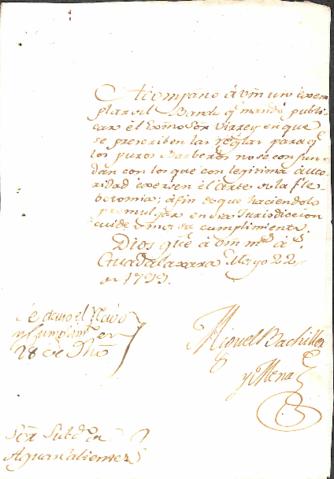 Acompaño á vm un exem
plar del Bando q̃. mandó publi
car el Exmo Sor Virrey en que
se prescriben las reglas para q̃.
los puros Barberos no se confun
dan con los que con legitima auto
ridad exersen el arte de la fle
botomia; afin de que haciendolo
promulgar en esa Jurisdiccion
cuide de su cumplimiento.
Dios gue. á vm ms. as.
Guadalaxara Mayo 22
de 1799.
Miguel Bachiller
y Mena
Se davo el
cumplimto. en
28 de
Sor. Subdo. de
Aguascalientes